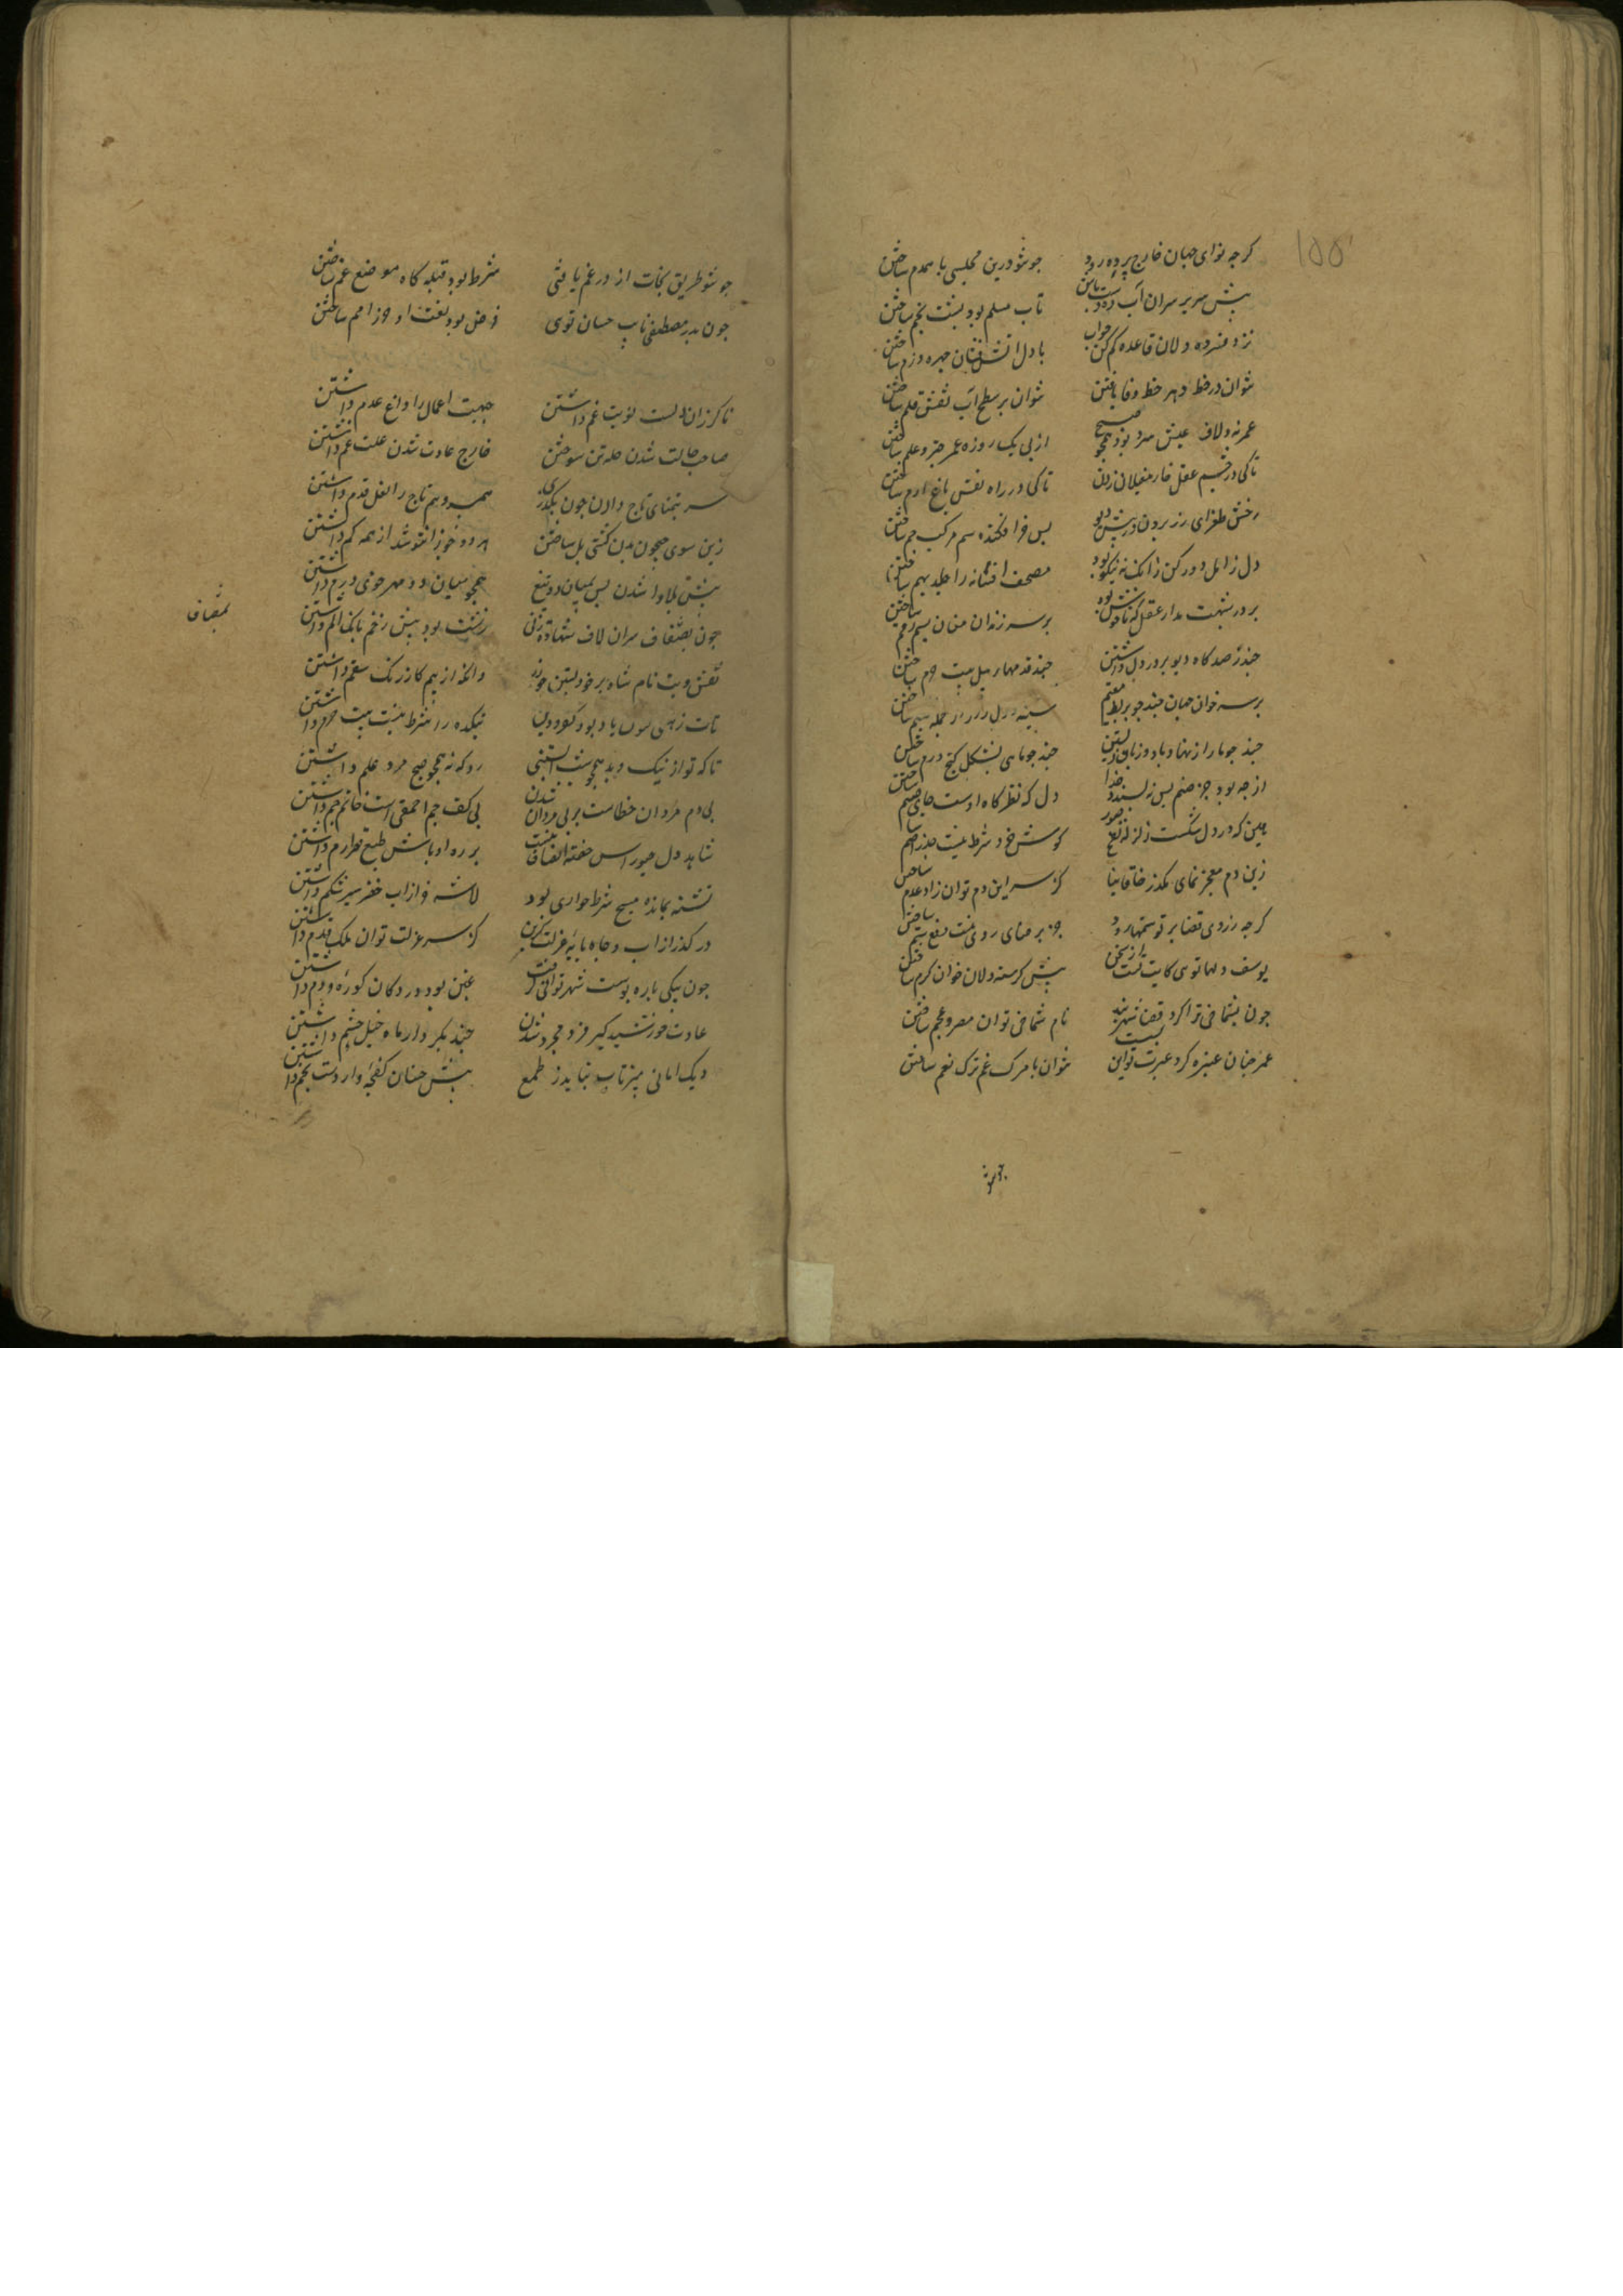 ۱۵۵
کرچه نوای جهان خارج پرده رود جو تو درین مجلسی با همدم ساختن
پیش سریر سران آب ده دست باش تاب مسلم بود پشت بخم ساختن
نزد فسرده دلان قاعده کم کن جو آب با دل آتش فشان چهره دژم ساختن
نتوان در خط دهر خط وفا یافتن نتوان بر سطح آب نقش قلم ساختن
عمر نه و لاف عیش سرد بود همجو صبح از پی یک روزه عمر جتر و علم ساختن
تا کی در چشم عقل خار مغیلان زدن تا کی در راه نفس باغ ارم ساختن
رخش طغرای رز بردن در پیش دیو پس خر افکنده سم مرکب جم ساختن
دل ز امل دور کن زانک نه نیکو بود مصحف افسانه را جلد بهم ساختن
بر در شهبت مدار عقل که ناخوش بود بر سر زندان منان رقم ساختن
جند رصدکاه دیو بر در دل داشتن جند قدمکاه پیل بیت حرم ساختن
بر سر خوان جهان جند جو بربط مقیم سینه
جند جو مار از نهاد با دو زبان زیستن جند جو ماهی بشکل کنج درم ساختن
از جه بود جز صنم بس نه پسندد خدا دل که نظرکاه اوست جای صنم ساختن
بین که در دل شکست زلزله نفخ صور کوش خرد شرط نیست جذر اصم ساختن
زین دم معجز نمای مکذر خاقانیا کز سر این دم توان زاد عدم ساختن
کرجه ز روی قضا بر تو ستمها رود جز به رضا روی نیست دفع ستم ساختن
یوسف دلها توی کایت تست از سخن پیش کرسنه دلان خوان کرم ساختن
جون بشماخی ترا کرد قضا شهربند نام شماخی توان مصر و عجم ساختن
عمر جنان عبره کرد عبرت تو این بست نتوان با مرک غم ترک نعم ساختن
جو تو طریق نجات از در غم یافتی شرط بود قبله کاه موضع غم ساختن
جون بدر مصطفی نایب حسان توی فرض بود نعت او حرز امم ساختن
ناکزران دلست نوبت غم داشتن جبهت آمال را داغ عدم داشتن
صاحب حالت شدن حله تن سوختن خارج عادت شدن علت غم داشتن
سر بتمنای تاج دادن جون بکذری همسر و هم تاج را نعل قدم داشتن
زین سوی جیحون بدن کشتی پل ساختن
پیش بلا وا شدن پس بمیان دو تیغ همجو میان دو مهر خوی درم داشتن
جون بمصاف سران لاف شهادت زنی زشت بود پیش زخم بانک الم داشتن
بمصاف
نقش و بت نام شاه بر خود بستن جو زر وانکه از بیم کاز رنک سقم داشتن
بتکده را شرط نیست بیت حرم داشتن
تا که تو از نیک و بد همجو شب آبستنی رو که نه همجو صبح مرد علم داشتن
بی دم مردان خطاست بر پی مردان شدن بی کف جم احمقی است خاتم جم داشتن
شاید بر ره اوباش طبع داشتن
تشنه بمانده مسیح شرط حواری بود لاشه خر از آب خضر سیر شکم داشتن
در کذر از آب و جاه پایه عزلت کزین کز سر عزلت توان ملک قدم داشتن
جون بیکی پاره پوست شهر توانی کرفت غبن بود در دکان کوره و دم داشتن
عادت خورشید کیر فرد و مجرد شدن جند بکردار ماه خیل حشم داشتن
دیک امانی میز تاب نیاید ز طمع پیش خسان کفجه وار دست بخم داشتن